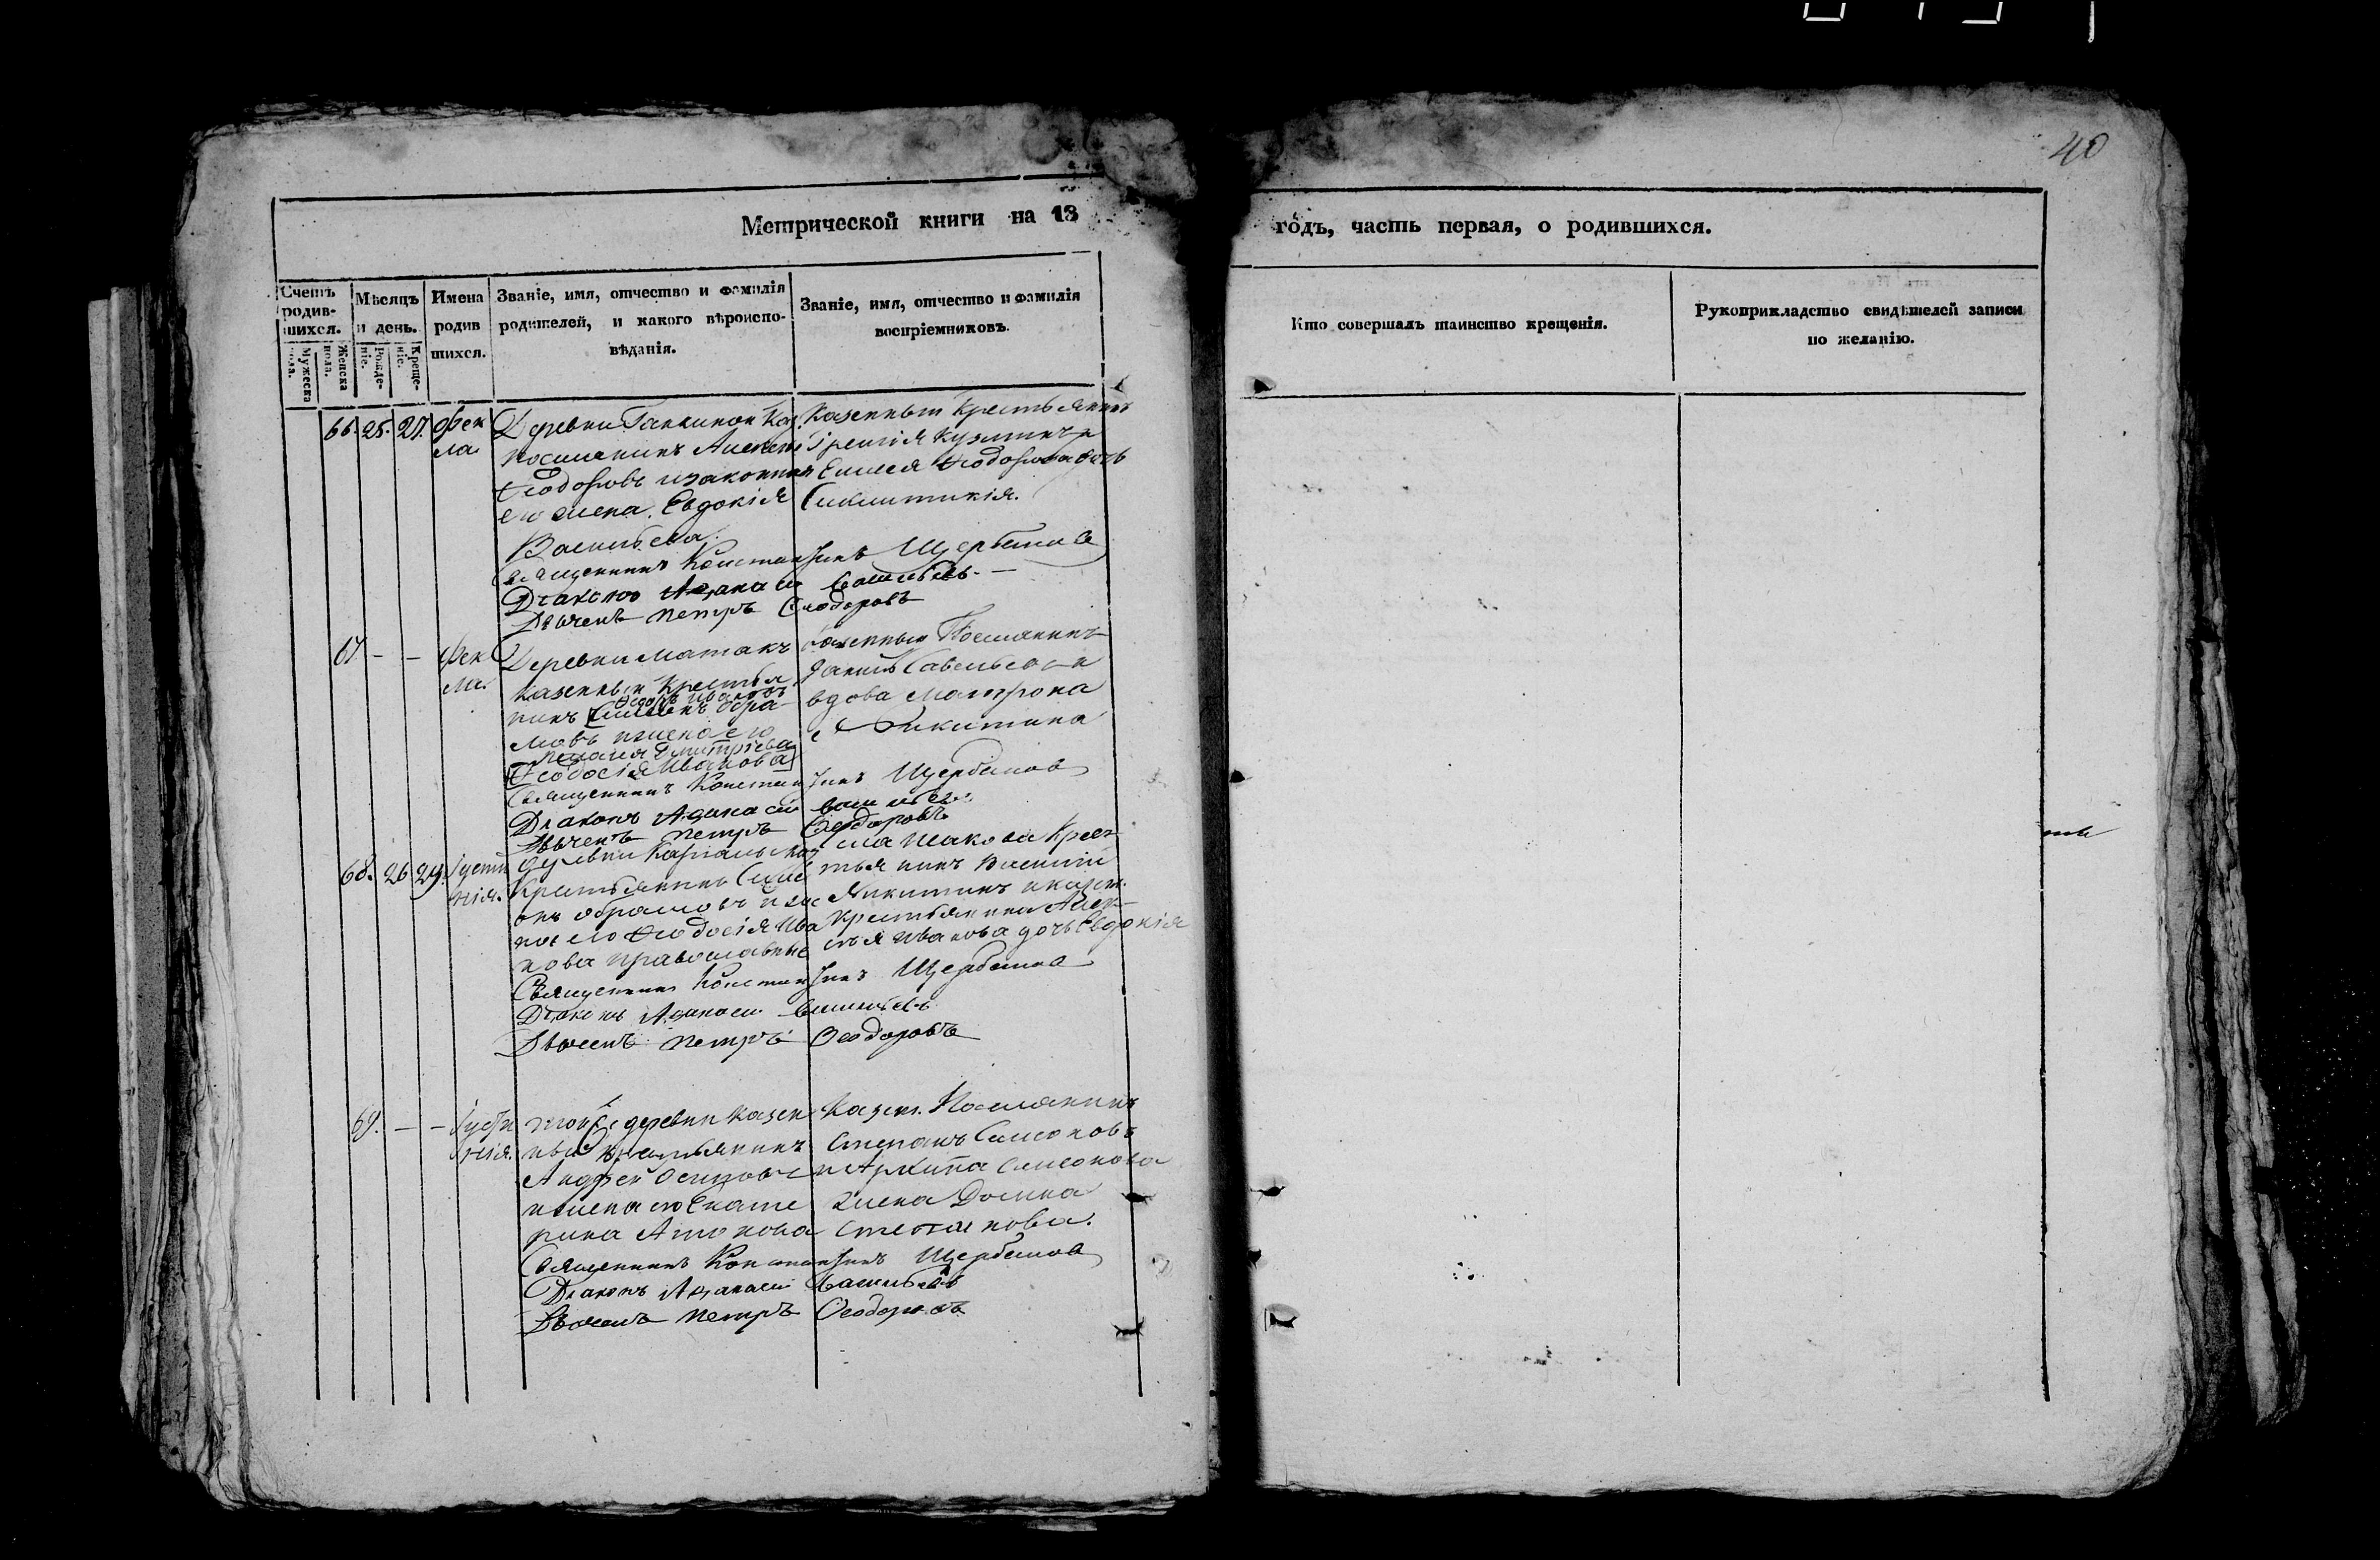 40
Метрической книги на 18
годъ, часть первая, о родившихся.
Счетъ родив-шихся.
Мужеска пола.
Женска пола.
Мѣсяцъ и день.
Рожде-ніе.
Креще-ніе.
Имена родив шихся.
Званіе, имя, отчество и фамилія
родителей, и какого вѣроиспо-
вѣданія.
Званіе, имя, отчество и фамилія
воспріемниковъ.
Кто совершалъ таинство крещенія.
Рукоприкладство свидѣтелей записи
по желанію.
66. 25. 27. Фек
ла
Деревни Каз.
Ѳеодоровъ и законная
его жена Евдокія
Васильева.
Казенный Крестьянинъ
Кузминъ и
Ѳеодорова дочь
Священникъ Константинъ Щербаковъ
Діаконъ Аѳанасій Васильевъ.
Дьячекъ Петръ Ѳеодоровъ
67 - - Фек
ла.
Деревни
казенный Крестья
Ѳедоръ Ивановъ
нинъ Абра-
мовъ и жена его
Дмитріева
Ѳеодосія Иванова
Казенный Поселянинъ
Савельевъ и
вдова Матрона
Никитина
Священникъ Константинъ Щербаковъ
Діаконъ Аѳанасій Васильевъ
Дьячекъ Петръ Ѳеодоровъ
68. 26 29. Іусти
нія.
деревни
Крестьянинъ Симе
онъ Абрамовъ и же
на его Ѳеодосія Ива
нова православные
Крес-
тьянинъ Василій
Никитинъ и казен.
крестьянина Алек-
сѣя Иванова дочь Евдокія
Священникъ Константинъ Щербаковъ
Діаконъ Аѳанасій Васильевъ
Дьячекъ Петръ Ѳеодоровъ
69. - - Іусти
нія.
той же деревни казен
ный крестьянинъ
Андрей Осиповъ
и жена его Екате
рина
Казен. Поселянинъ
Степанъ Самсоновъ
и Архипа Самсонова
жена Домна
Степанова.
Священникъ Константинъ Щербаковъ
Діаконъ Аѳанасій Васильевъ
Дьячекъ Петръ Ѳеодоровъ